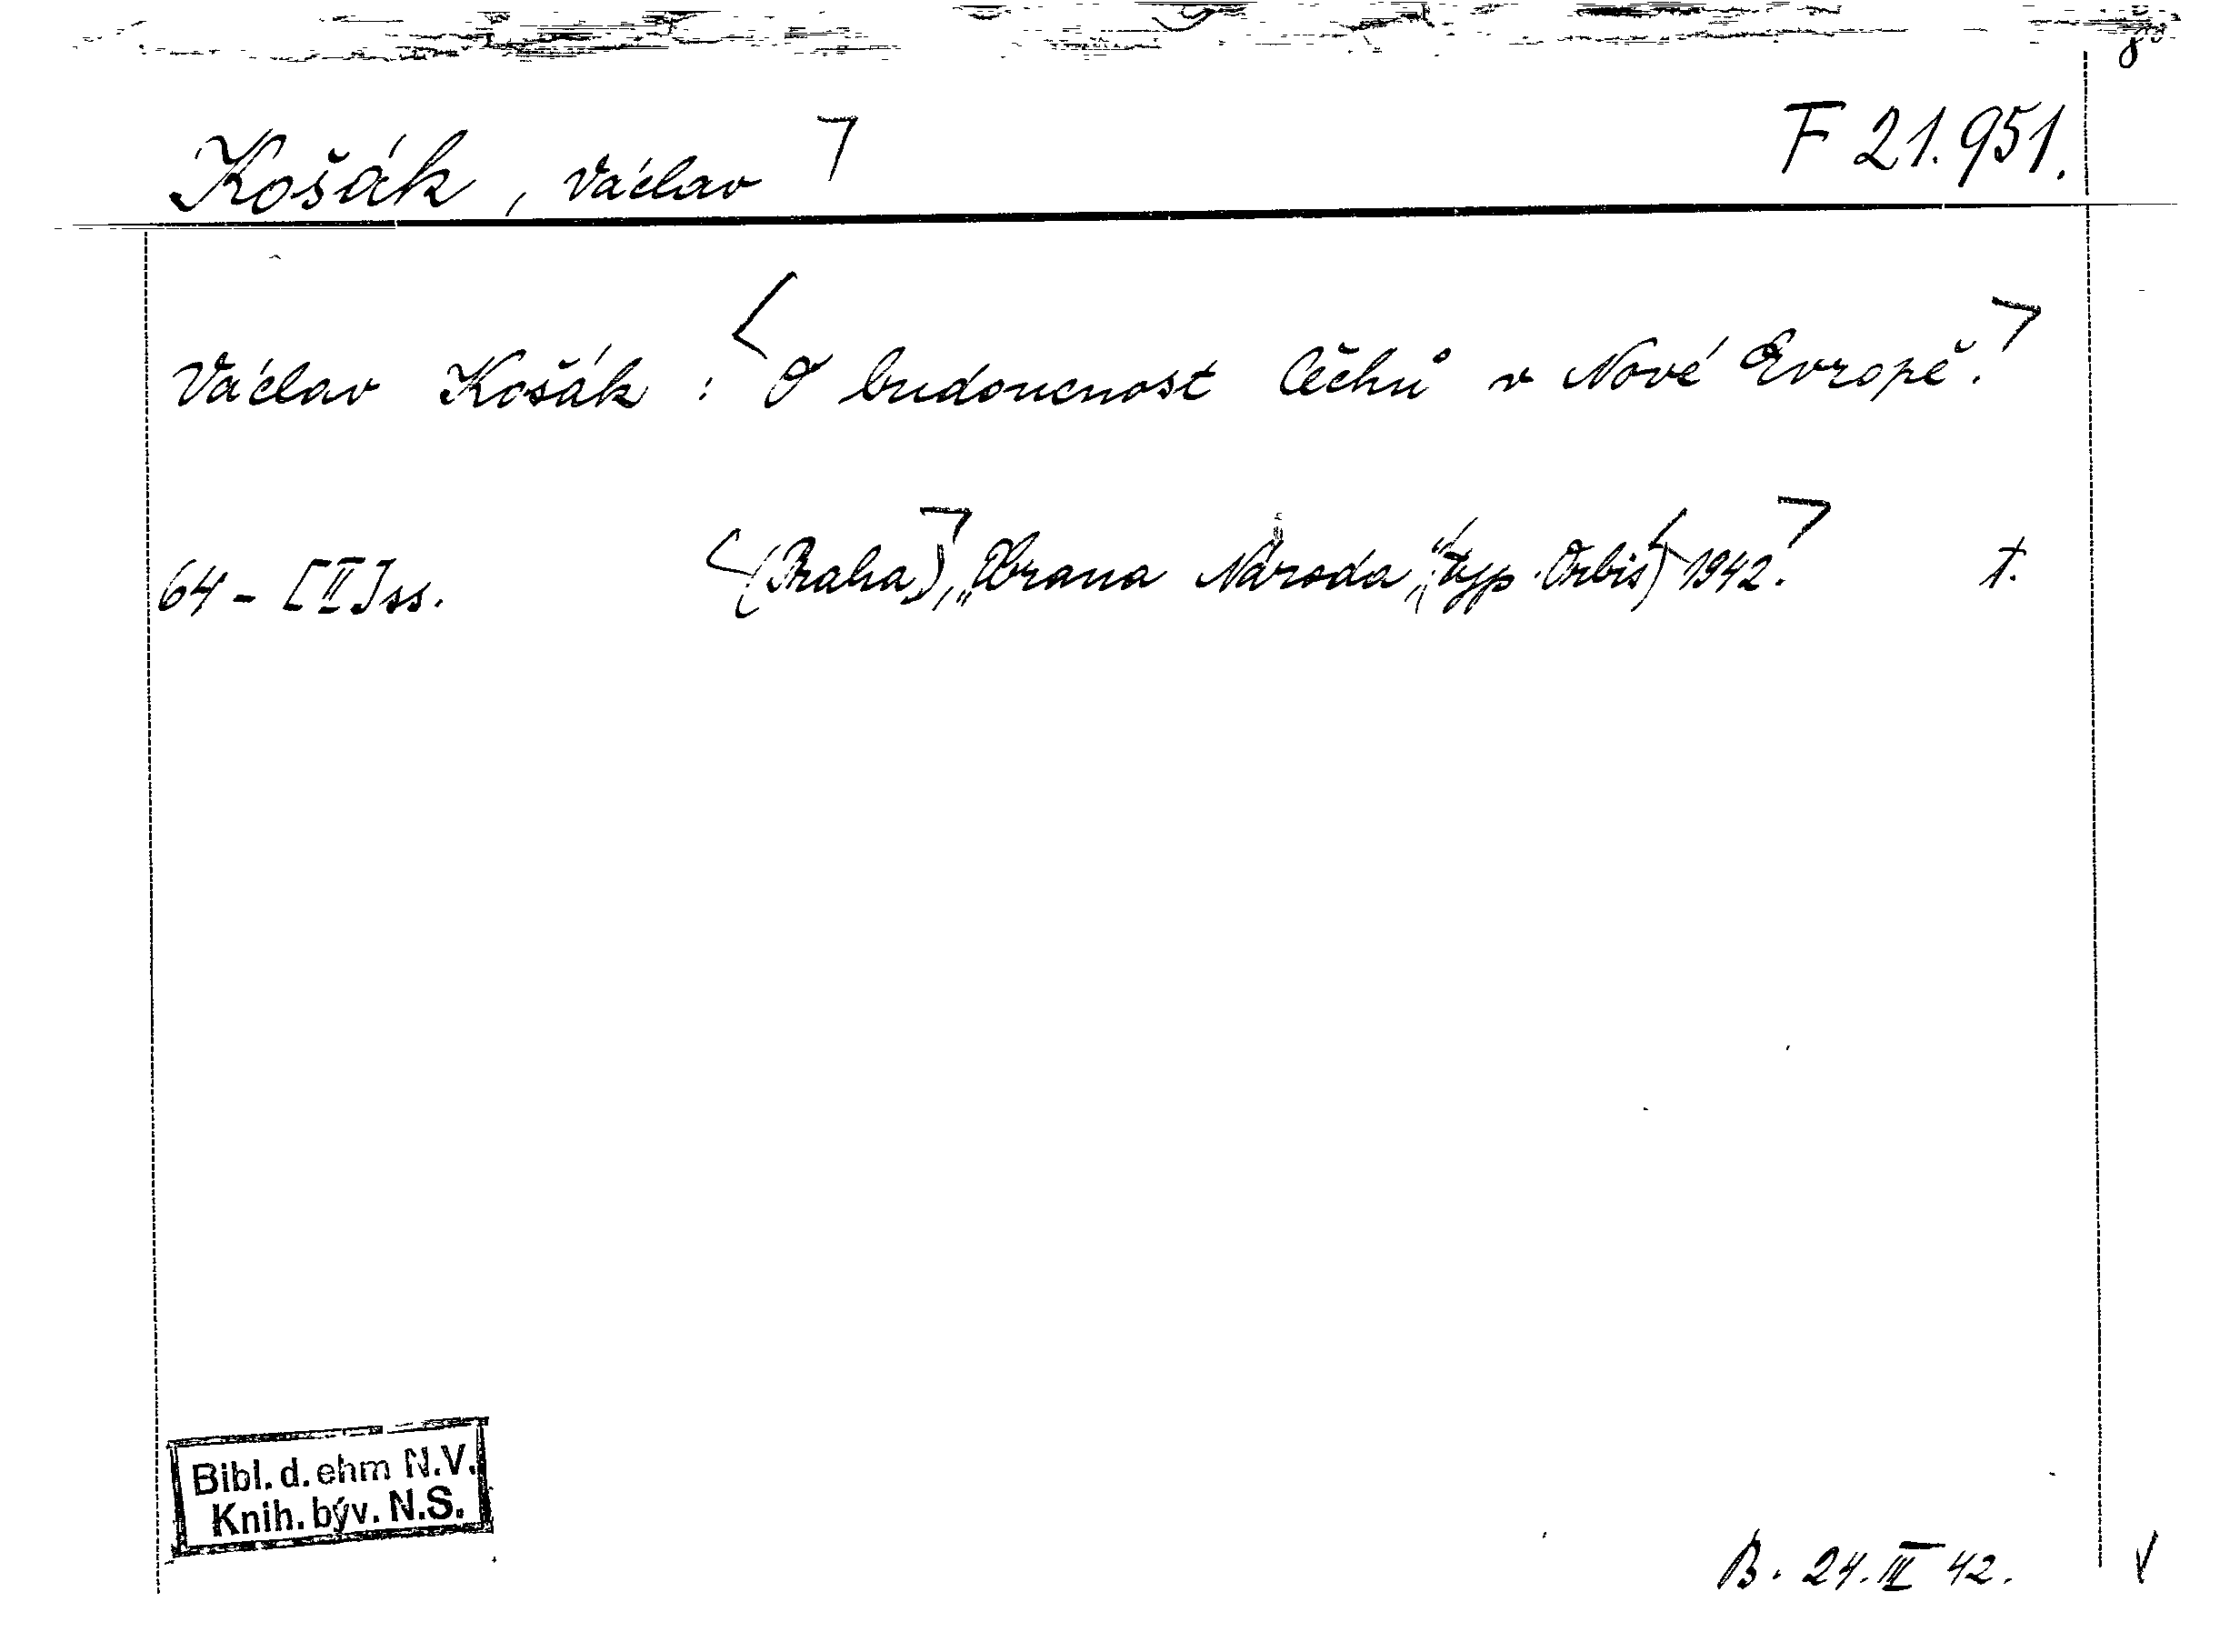 8°
Košák, Václav ⌝ F 21.951.
Václav Košák : <O budoucnost Čechů v Nové Evropě.⌝
64 - [II] ss. <(Praha)⌝, „Obrana Národa,“ (typ. Orbis) <1942.⌝ t.
Bibl. d. ehm N.V.
Knih. býv. N.S.
B. 24. III 42. √